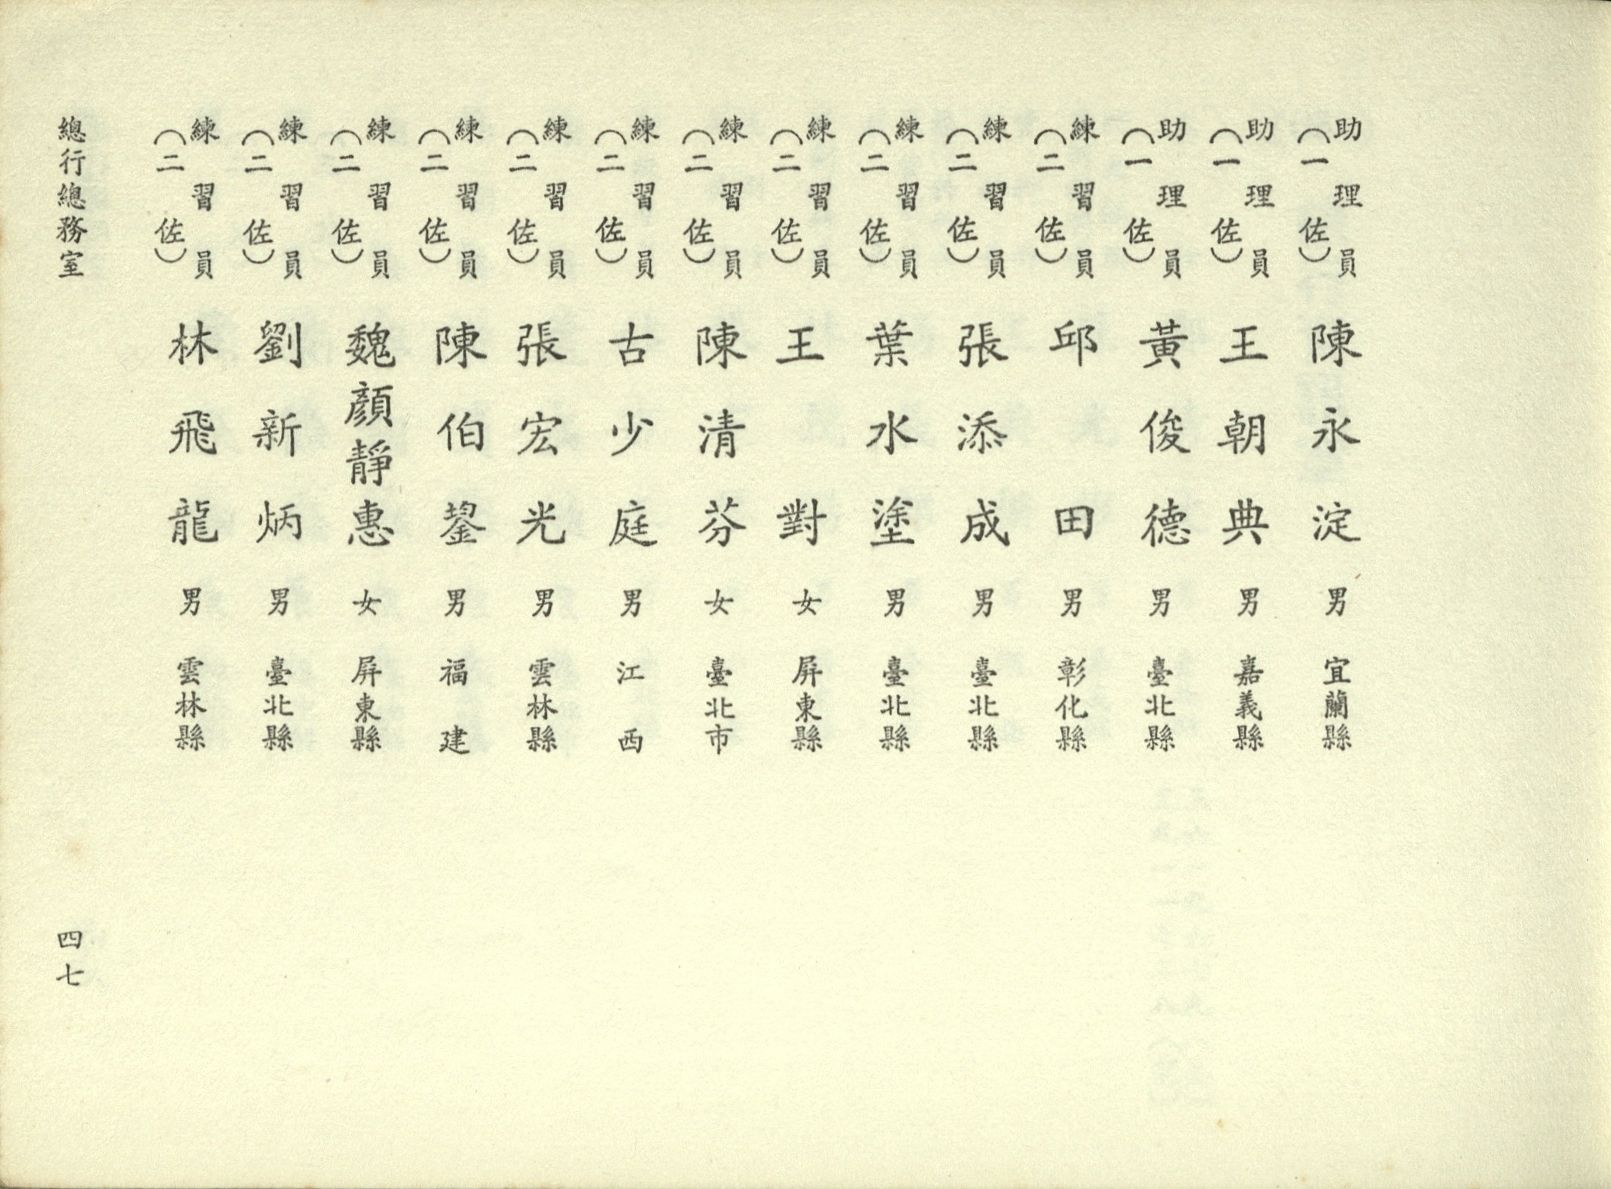 助理員（一佐） 陳永淀 男 宜蘭縣
助理員（一佐） 王朝典 男 嘉義縣
助理員（一佐） 黃俊德 男 臺北縣
練習員（二佐） 邱田 男 彰化縣
練習員（二佐） 張添成 男 臺北縣
練習員（二佐） 葉水塗 男 臺北縣
練習員（二佐） 王對 女 屏東縣
練習員（二佐） 陳清芬 女 臺北市
練習員（二佐） 古少庭 男 江西
練習員（二佐） 張宏光 男 雲林縣
練習員（二佐） 陳伯鋆 男 福建
練習員（二佐） 魏顏靜惠 女 屏東縣
練習員（二佐） 劉新炳 男 臺北縣
練習員（二佐） 林飛龍 男 雲林縣
總行總務室 四七